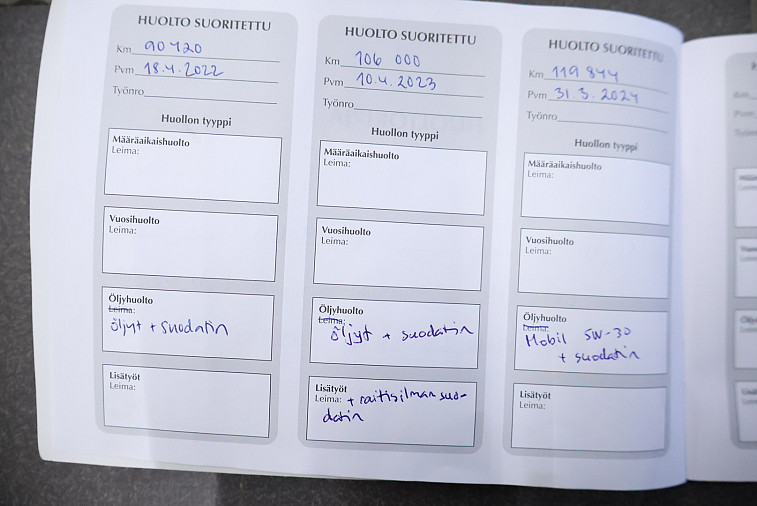 HUOLTO SUORITETTU
Km 90 720
Pvm 18.4.2022
Työnro
Huollon tyyppi
Määräaikaishuolto
Leima:
Vuosihuolto
Leima:
Öljyhuolto
Leima:
öljyt + suodatin
Lisätyöt
Leima:
HUOLTO SUORITETTU
Km 106 000
Pvm 10.4.2023
Työnro
Huollon tyyppi
Määräaikaishuolto
Leima:
Vuosihuolto
Leima:
Öljyhuolto
Leima:
öljyt + suodatin
Lisätyöt
Leima: + raitisilman suo-
datin
HUOLTO SUORITETTU
Km 119 844
Pvm 31.3.2024
Työnro
Huollon tyyppi
Määräaikaishuolto
Leima:
Vuosihuolto
Leima:
Öljyhuolto
Leima:
Mobil 5W-30
+ suodatin
Lisätyöt
Leima: